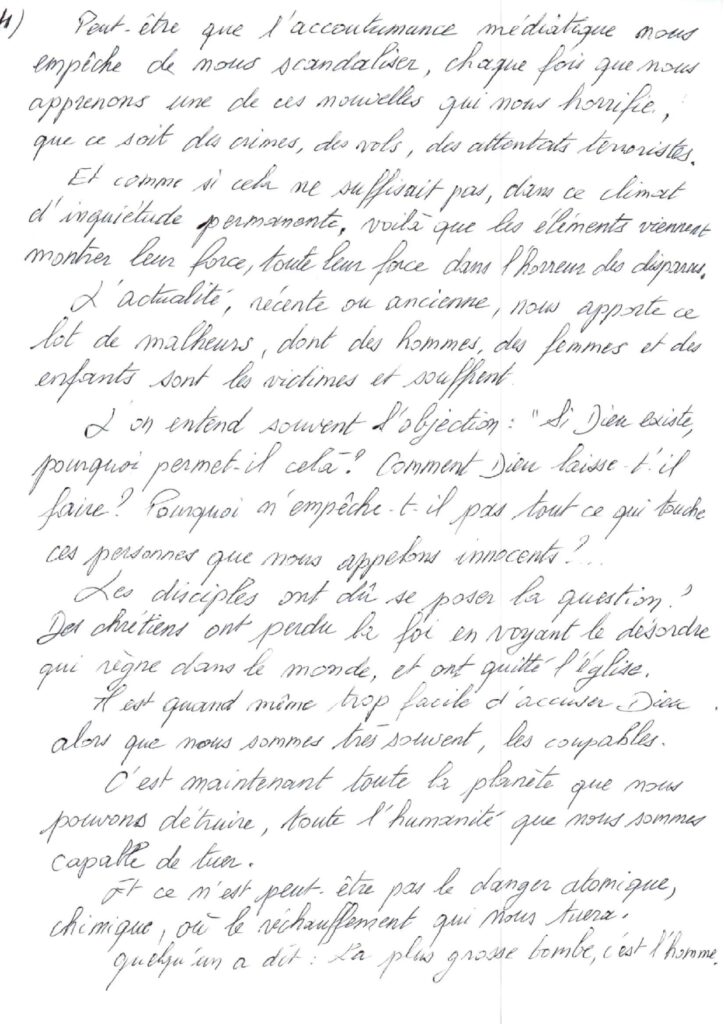 4)
Peut-être que l'accoutumance médiatique nous
empêche de nous scandaliser, chaque fois que nous
apprenons une de ces nouvelles qui nous horrifie,
que ce soit des crimes, des vols, des attentats terroristes.
Et comme si cela ne suffisait pas, dans ce climat
d'inquiétude permanente, voilà que les éléments viennent
montrer leur force, toute leur force dans l'horreur des disparus.
L'actualité, récente ou ancienne, nous apporte ce
lot de malheurs, dont des hommes, des femmes et des
enfants sont les victimes et souffrent.
L'on entend souvent l'objection : "Si Dieu existe,
pourquoi permet-il celà ? Comment Dieu laisse-t-'il
faire ? Pourquoi n'empêche-t-il pas tout ce qui touche
ces personnes que nous appelons innocents ?...
Les disciples ont dû se poser la question ?
Des chrétiens ont perdu la foi en voyant le désordre
qui règne dans le monde, et ont quitté l'église.
Il est quand même trop facile d'accuser Dieu
alors que nous sommes très souvent, les coupables.
C'est maintenant toute la planète que nous
pouvons détruire, toute l'humanité que nous sommes
capable de tuer.
Et ce n'est peut-être pas le danger atomique,
chimique, où le réchauffement qui nous tuera.
quelqu'un a dit : La plus grosse bombe, c'est l'homme.